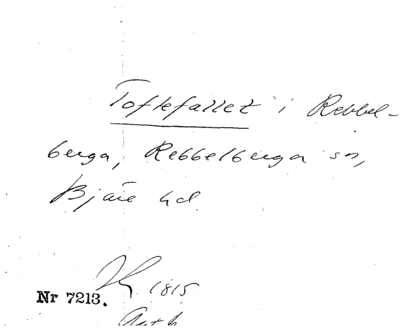 Toftefallet i Rebbel-
berga, Rebbelberga sn,
Bjäre hd
1815
Nr 7213.